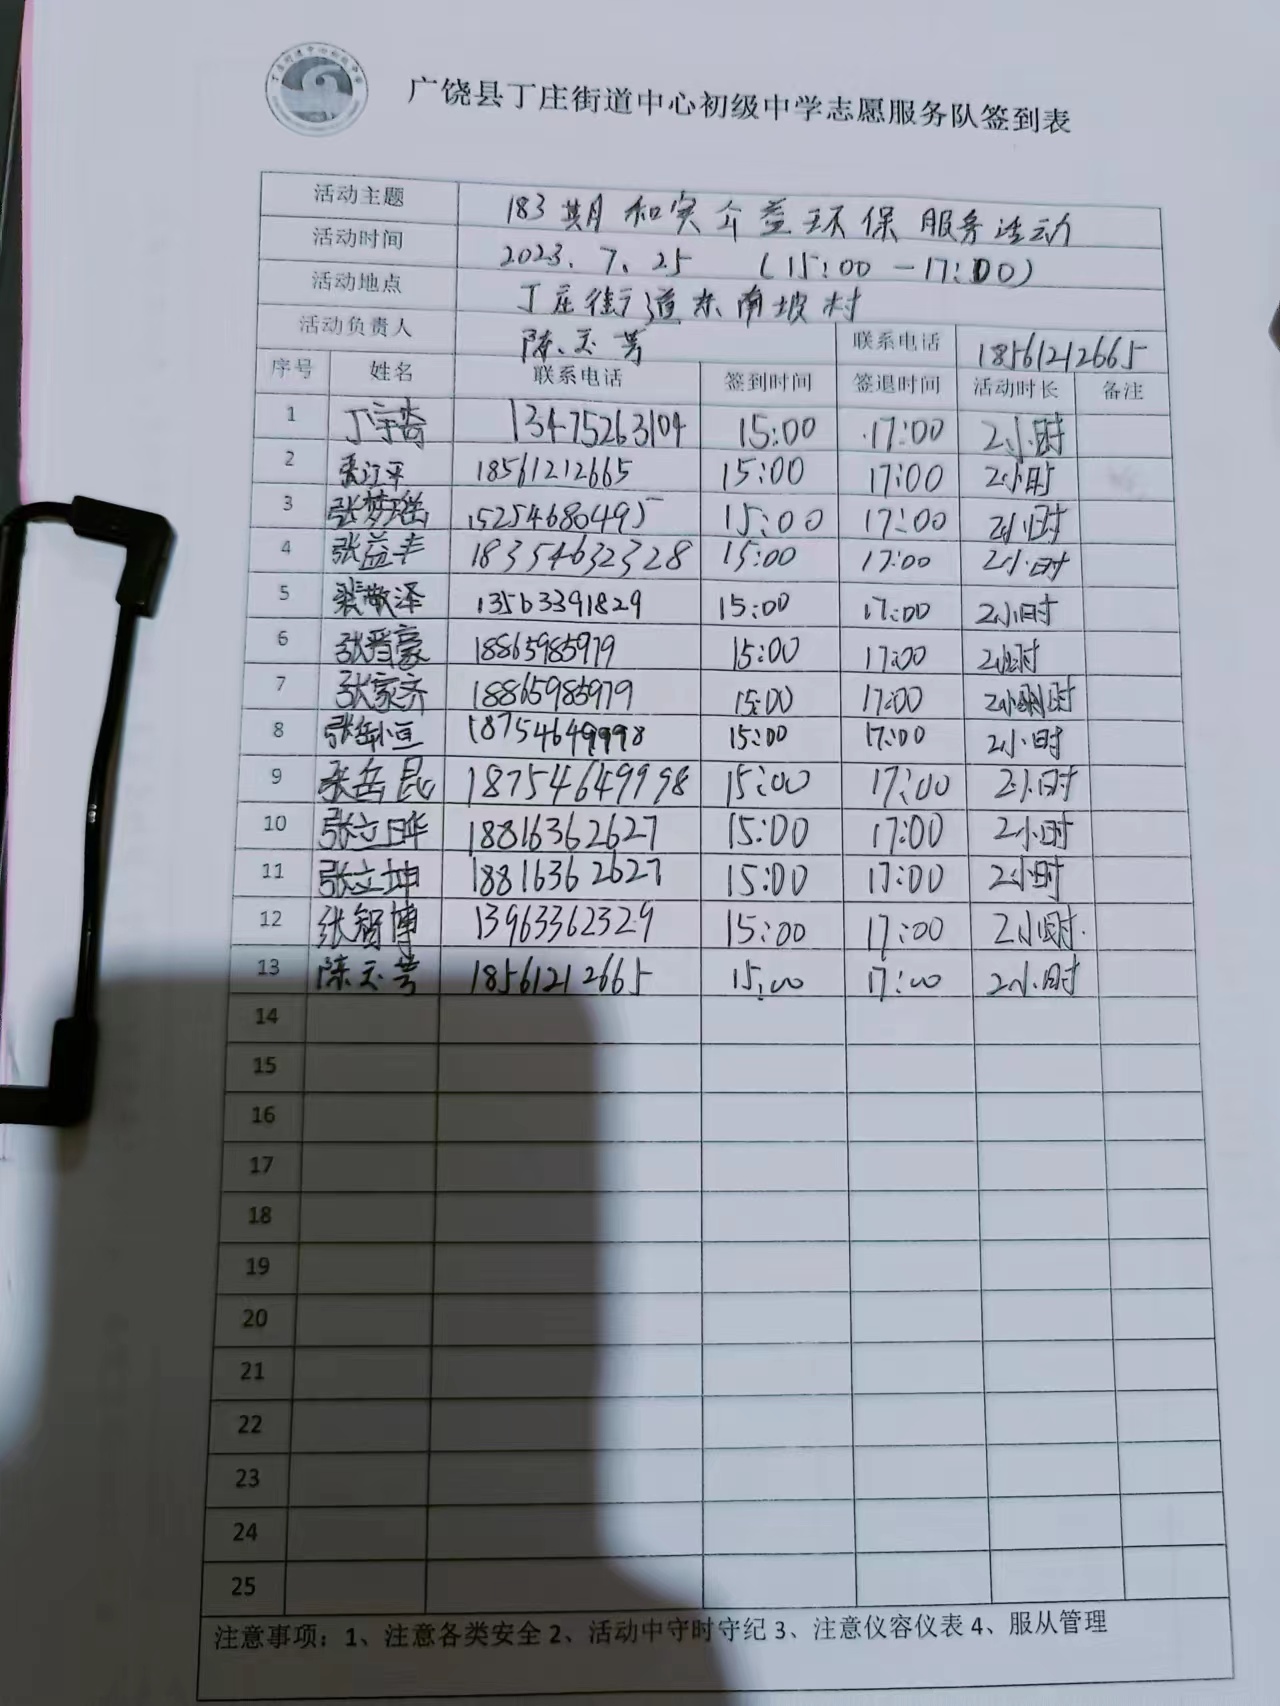 广饶县丁庄街道中心初级中学志愿服务队签到表
活动主题 183期和实介益环保服务活动
活动时间 2023.7.25 (15:00-17:00)
活动地点 丁庄街道东南坡村
活动负责人 陈玉芳 联系电话 18561212665
序号 姓名 联系电话 签到时间 签退时间 活动时长 备注
1 13475263104 15:00 17:00 2小时
2 18561212665 15:00 17:00 2小时
3 张梦瑶 15254680495 15:00 17:00 2小时
4 张益丰 18354632328 15:00 17:00 2小时
5 裴敬泽 13563391829 15:00 17:00 2小时
6 张晋豪 18865985979 15:00 17:00 2小时
7 张家齐 18865985979 15:00 17:00 2小时
8 18754649998 15:00 17:00 2小时
9 张岳昆 18754649998 15:00 17:00 2小时
10 张立晔 18816362627 15:00 17:00 2小时
11 张立坤 18816362627 15:00 17:00 2小时
12 张智博 13963362329 15:00 17:00 2小时
13 陈玉芳 18561212665 15:00 17:00 2小时
14
15
16
17
18
19
20
21
22
23
24
25
注意事项：1、注意各类安全 2、活动中守时守纪 3、注意仪容仪表 4、服从管理